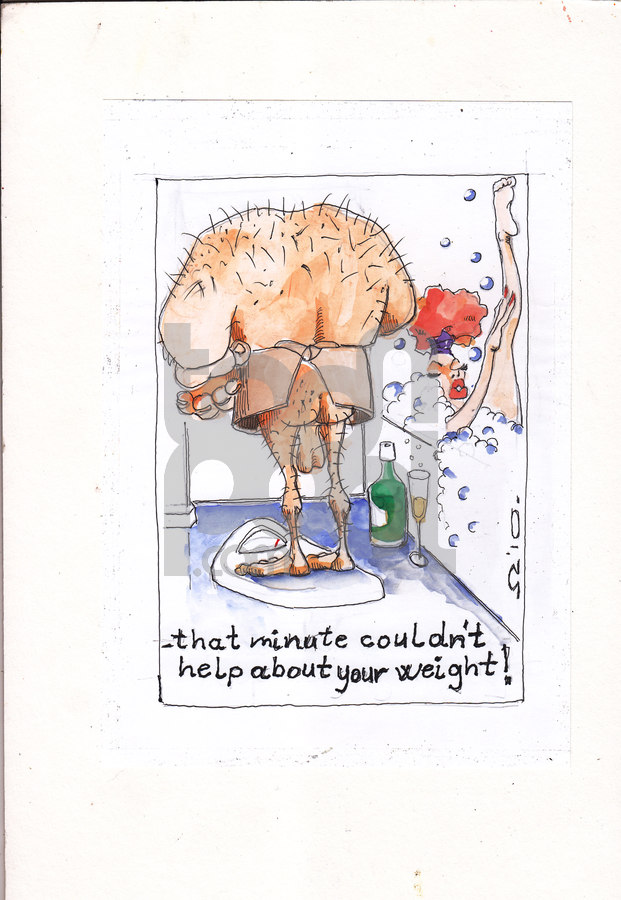 -that minute couldn't
help about your weight!